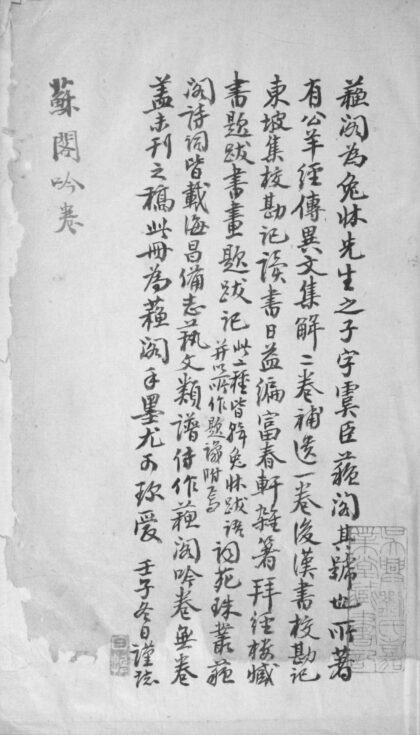 蘓閣為兔牀先生之子字虞臣蘓閣其號也所著
有公羊經傳異文集解二卷補遺一卷後漢書校勘記
東坡集校勘記讀書日益編富春軒雜箸拜經樓藏
書題跋書畫題跋記此二種皆輯兔牀跋語
并以所作題識附焉
詞苑珠叢蘓
閣詩詞皆載海昌備志藝文類譜傳作蘓閣吟卷無卷
蓋未刊之稿此冊為蘓閣手墨尤可珍愛 壬子冬日謹誌
蘇閣吟卷
吳興劉氏嘉
業堂藏書記